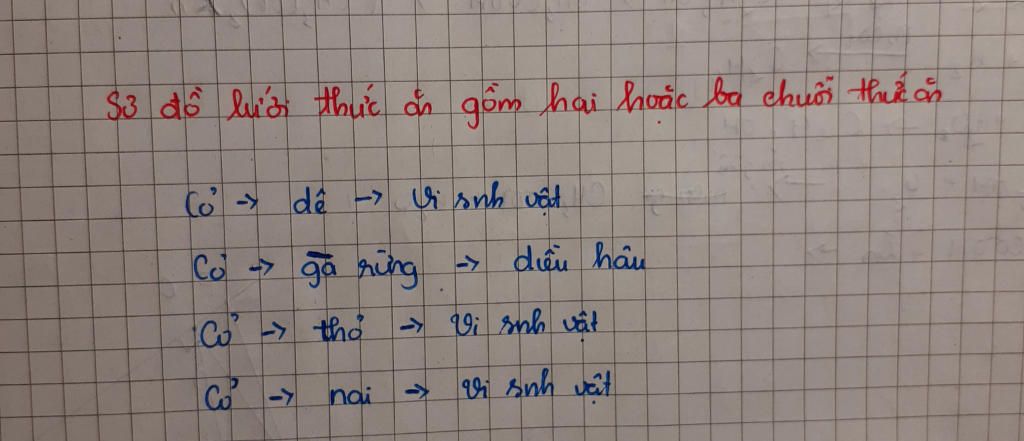 Sơ đồ lưới thức ăn gồm hai hoặc ba chuỗi thức ăn
Cỏ → dê → Vi sinh vật
Cỏ → gà rừng → diều hâu
Cỏ → thỏ → Vi sinh vật
Cỏ → nai → vi sinh vật